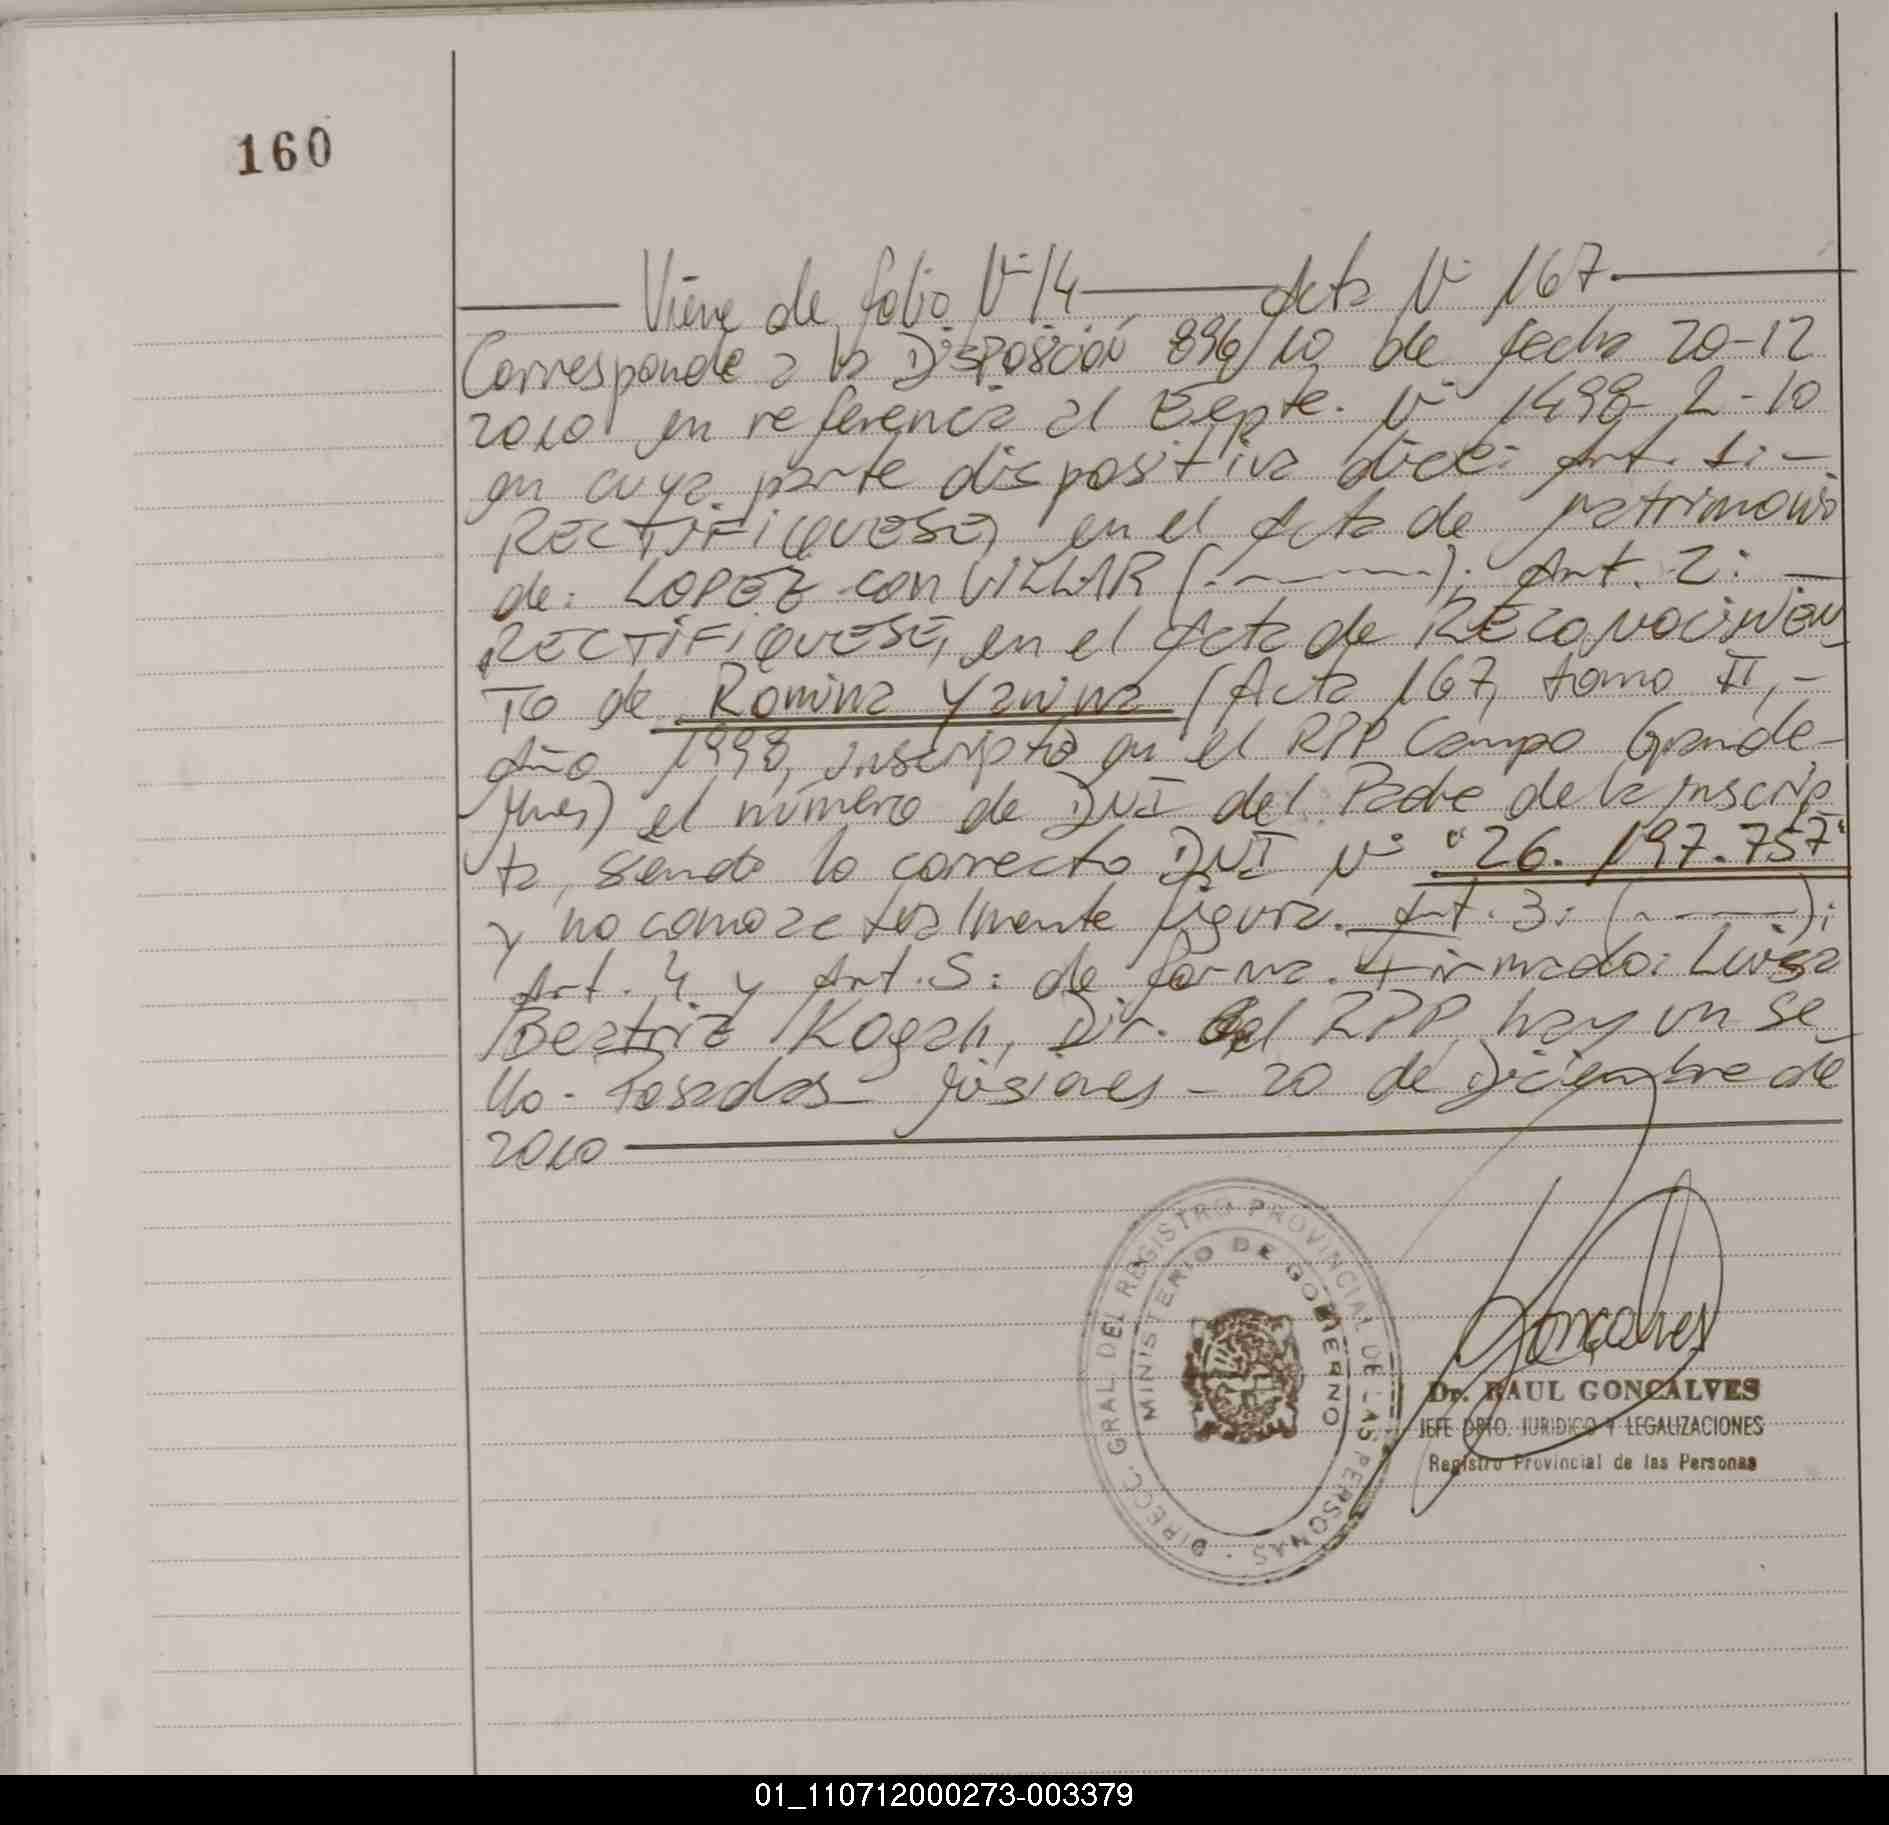 160
Viene de folio Nº 14 Acta Nº 167
Corresponde a la Disposición 896/10 de fecha 20-12
2010 en referencia al Expte. Nº 1498-L-10
en cuya parte dispositiva dice: Art. 1: -
RECTIFIQUESE, en el Acta de matrimonio
de: LOPEZ con VILLAR (. - - - - -). Art. 2: -
RECTIFIQUESE, en el Acta de RECONOCIMIEN
TO de Romina Yanina (Acta 167, tomo II, -
Año 1998, inscripto en el RPP Campo Grande -
Mnes) el número de DNI del Padre de la inscrip
ta, siendo lo correcto DNI Nº "26.197.757"
y no como actualmente figura. Art. 3: (- - - -);
Art. 4 y Art. 5: de forma. Firmado: Luisa
Beatriz Kogan, Dir. del RPP, hay un se
llo - Posadas - Misiones - 20 de Diciembre de
2010
DIRECC. GRAL. DEL REGISTRO PROVINCIAL DE LAS PERSONAS
MINISTERIO DE GOBIERNO
Gonçalves
Dr. RAUL GONCALVES
JEFE DPTO. JURIDICO Y LEGALIZACIONES
Registro Provincial de las Personas
01_110712000273-003379